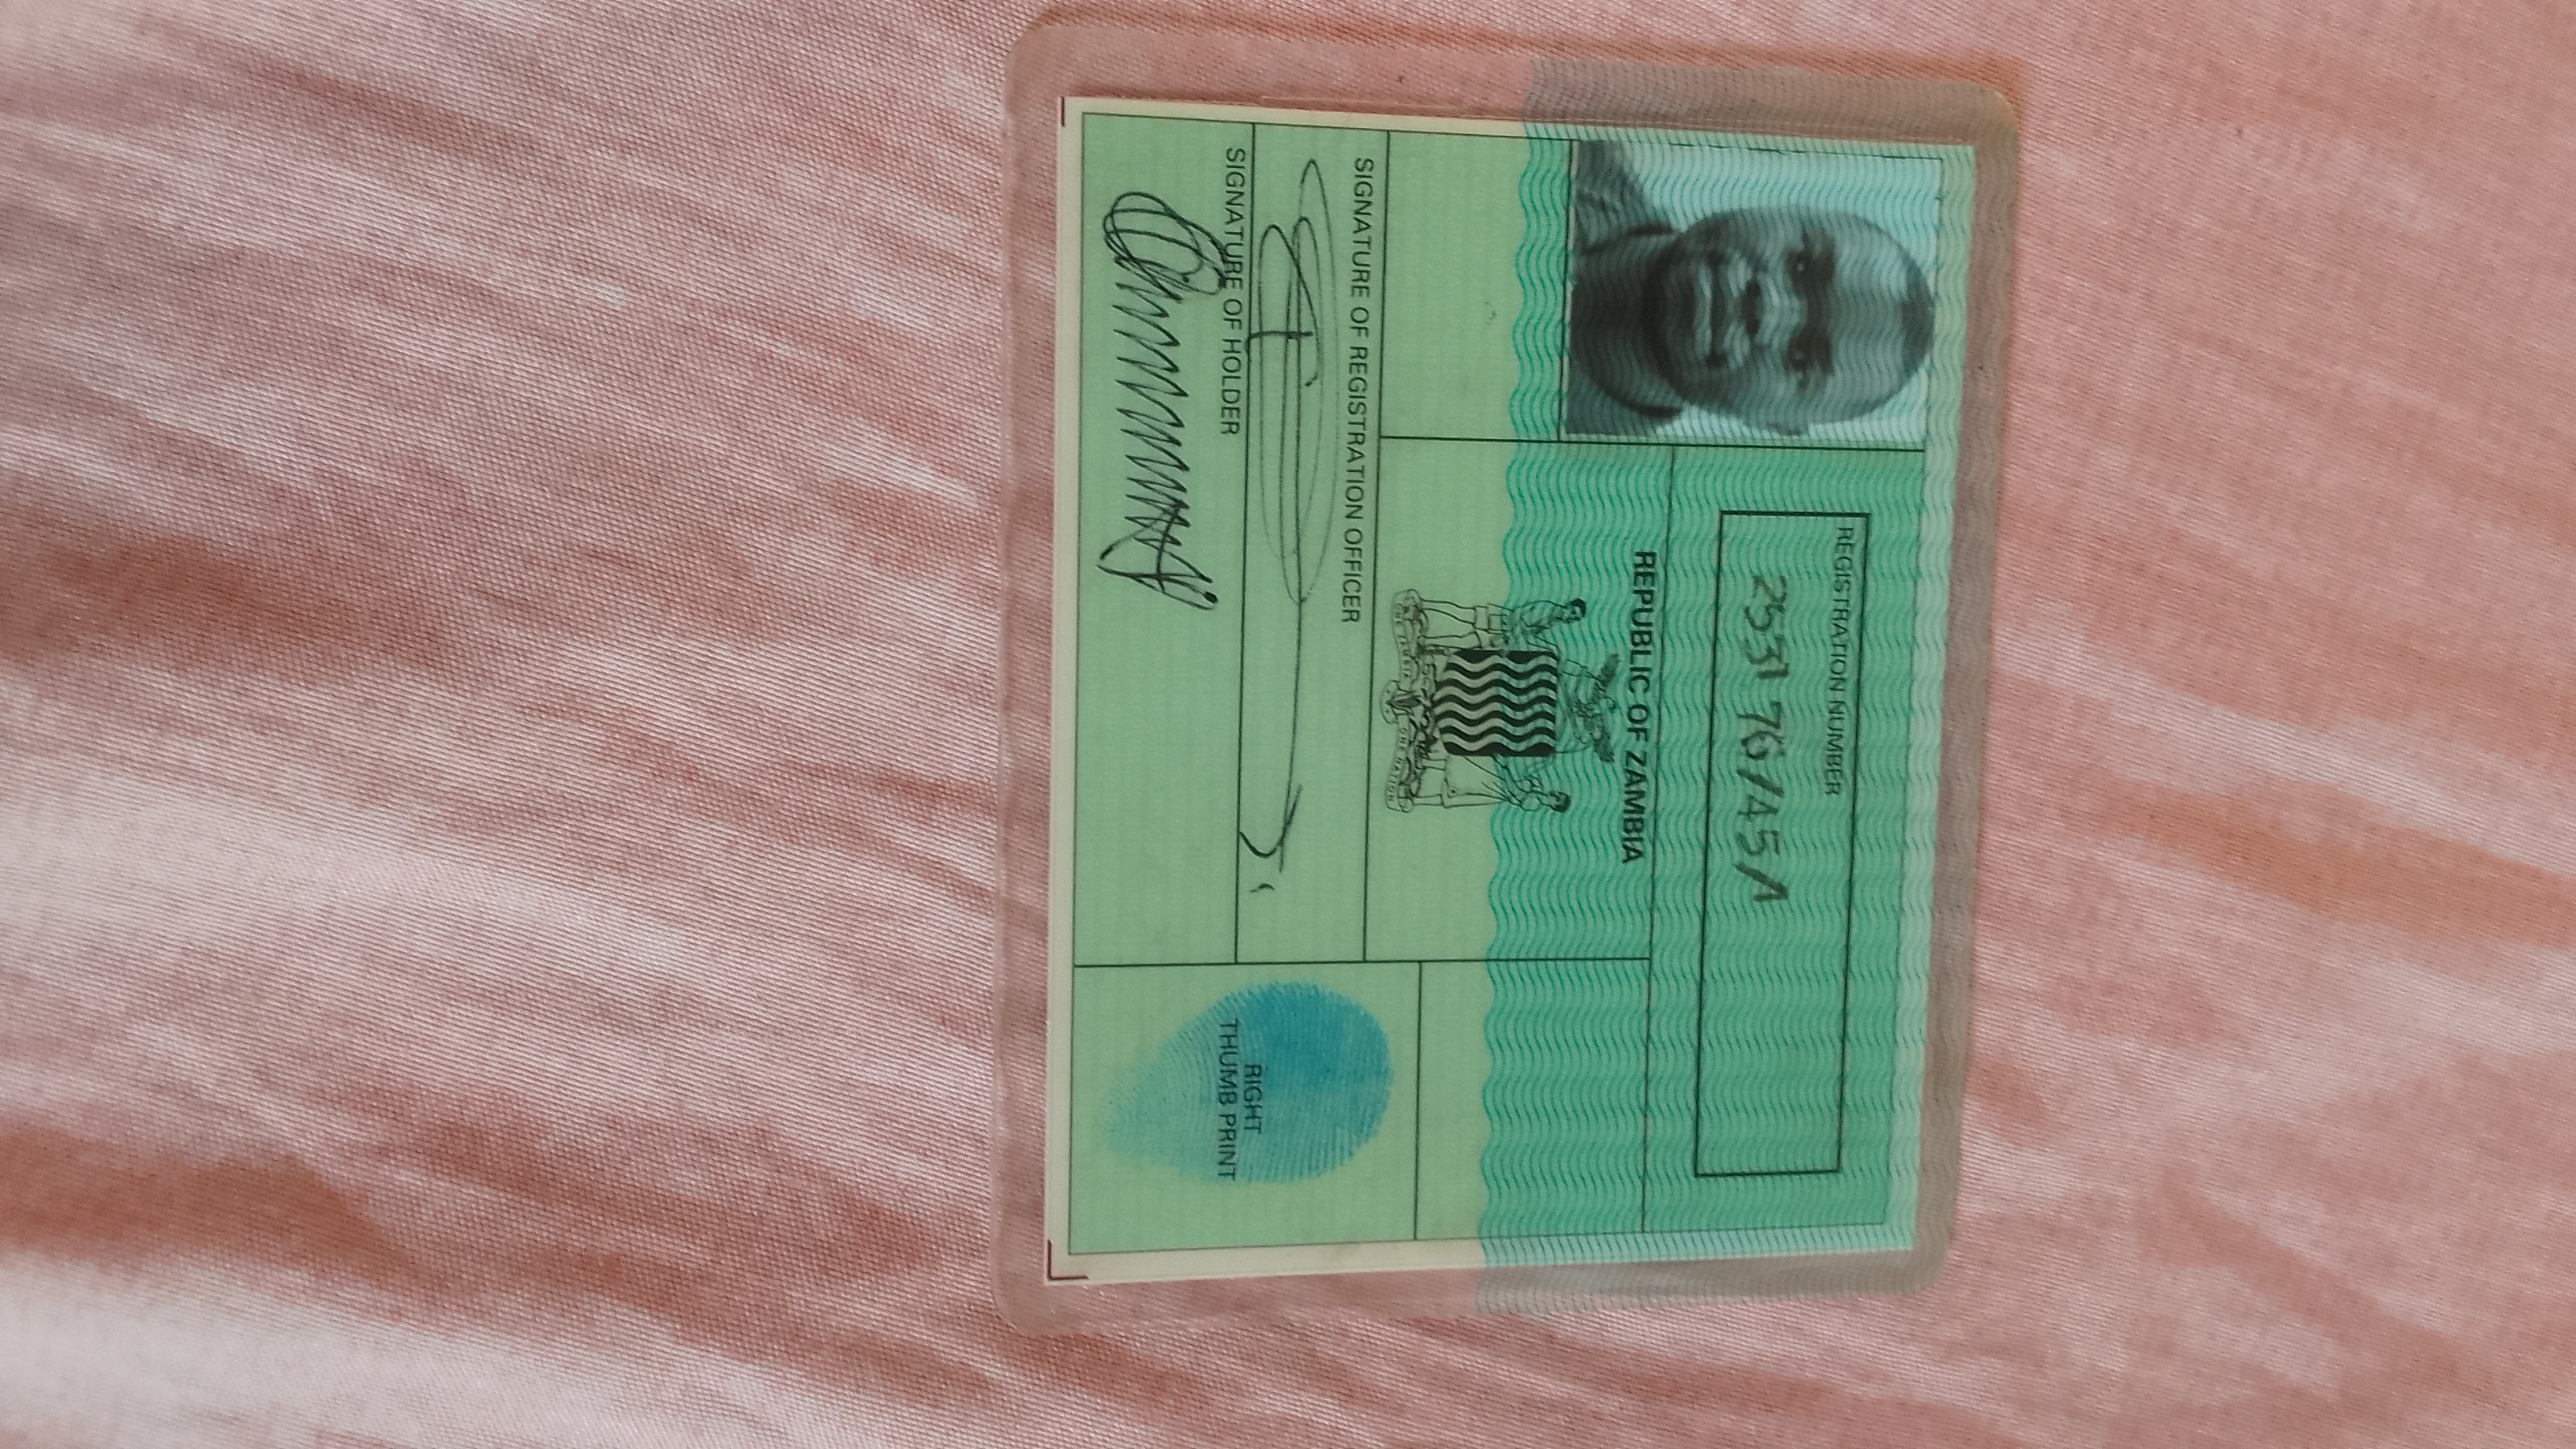 REGISTRATION NUMBER
253176/45/1
REPUBLIC OF ZAMBIA
ONE ZAMBIA ONE NATION
SIGNATURE OF REGISTRATION OFFICER
SIGNATURE OF HOLDER
RIGHT
THUMB PRINT